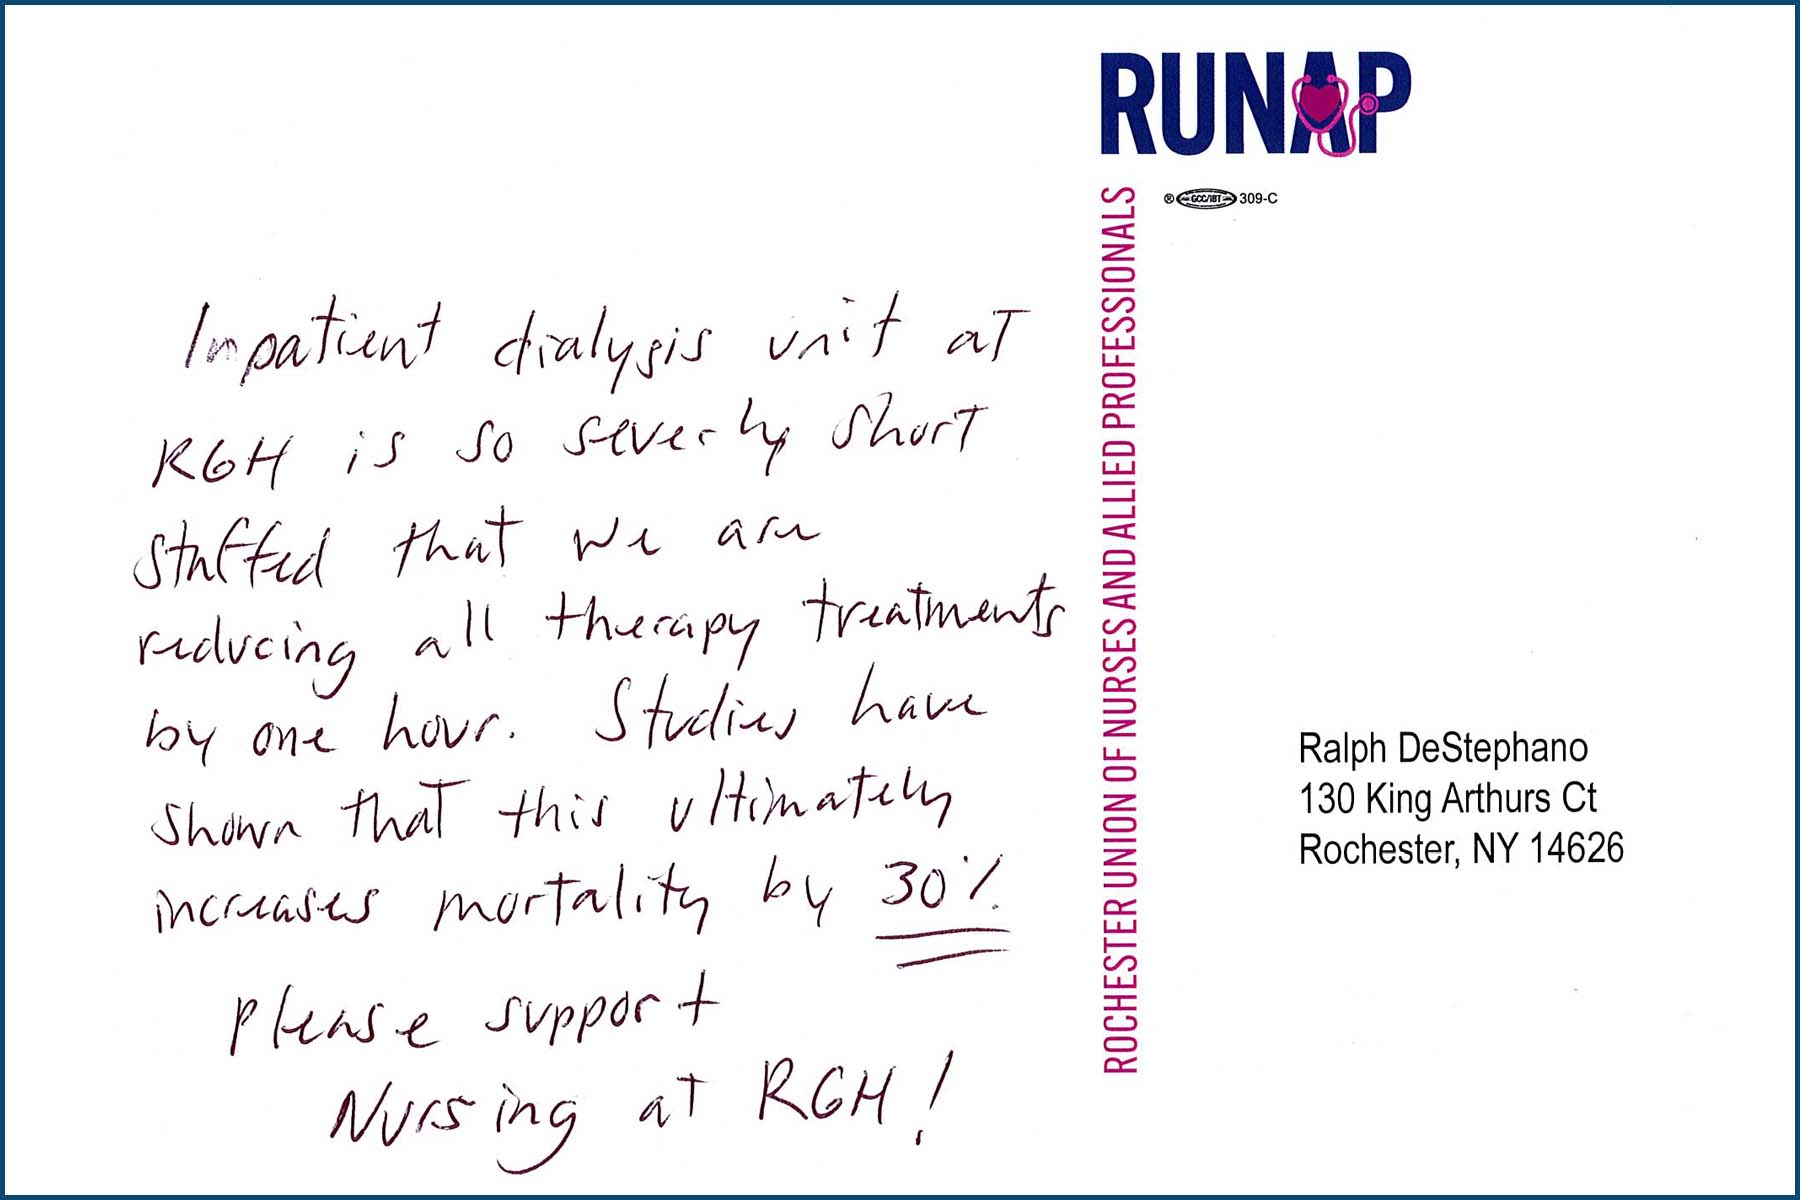 RUNAP
® GCC/IBT 309-C
ROCHESTER UNION OF NURSES AND ALLIED PROFESSIONALS
Inpatient dialysis unit at
RGH is so severly short
staffed that we are
reducing all therapy treatments
by one hour. Studies have
shown that this ultimately
increases mortality by 30%
Please support
Nursing at RGH!
Ralph DeStephano
130 King Arthurs Ct
Rochester, NY 14626